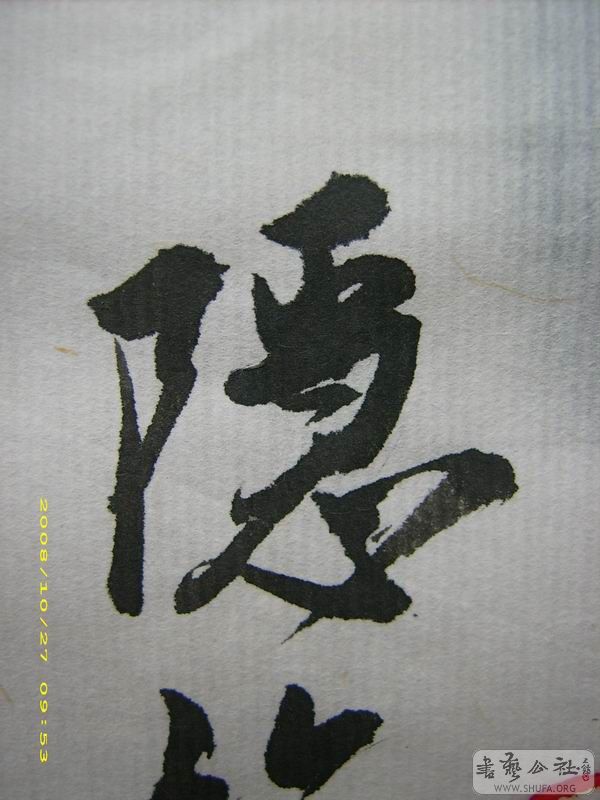 隱
2008/10/27 09:53
書藝公社
WWW.SHUFA.ORG